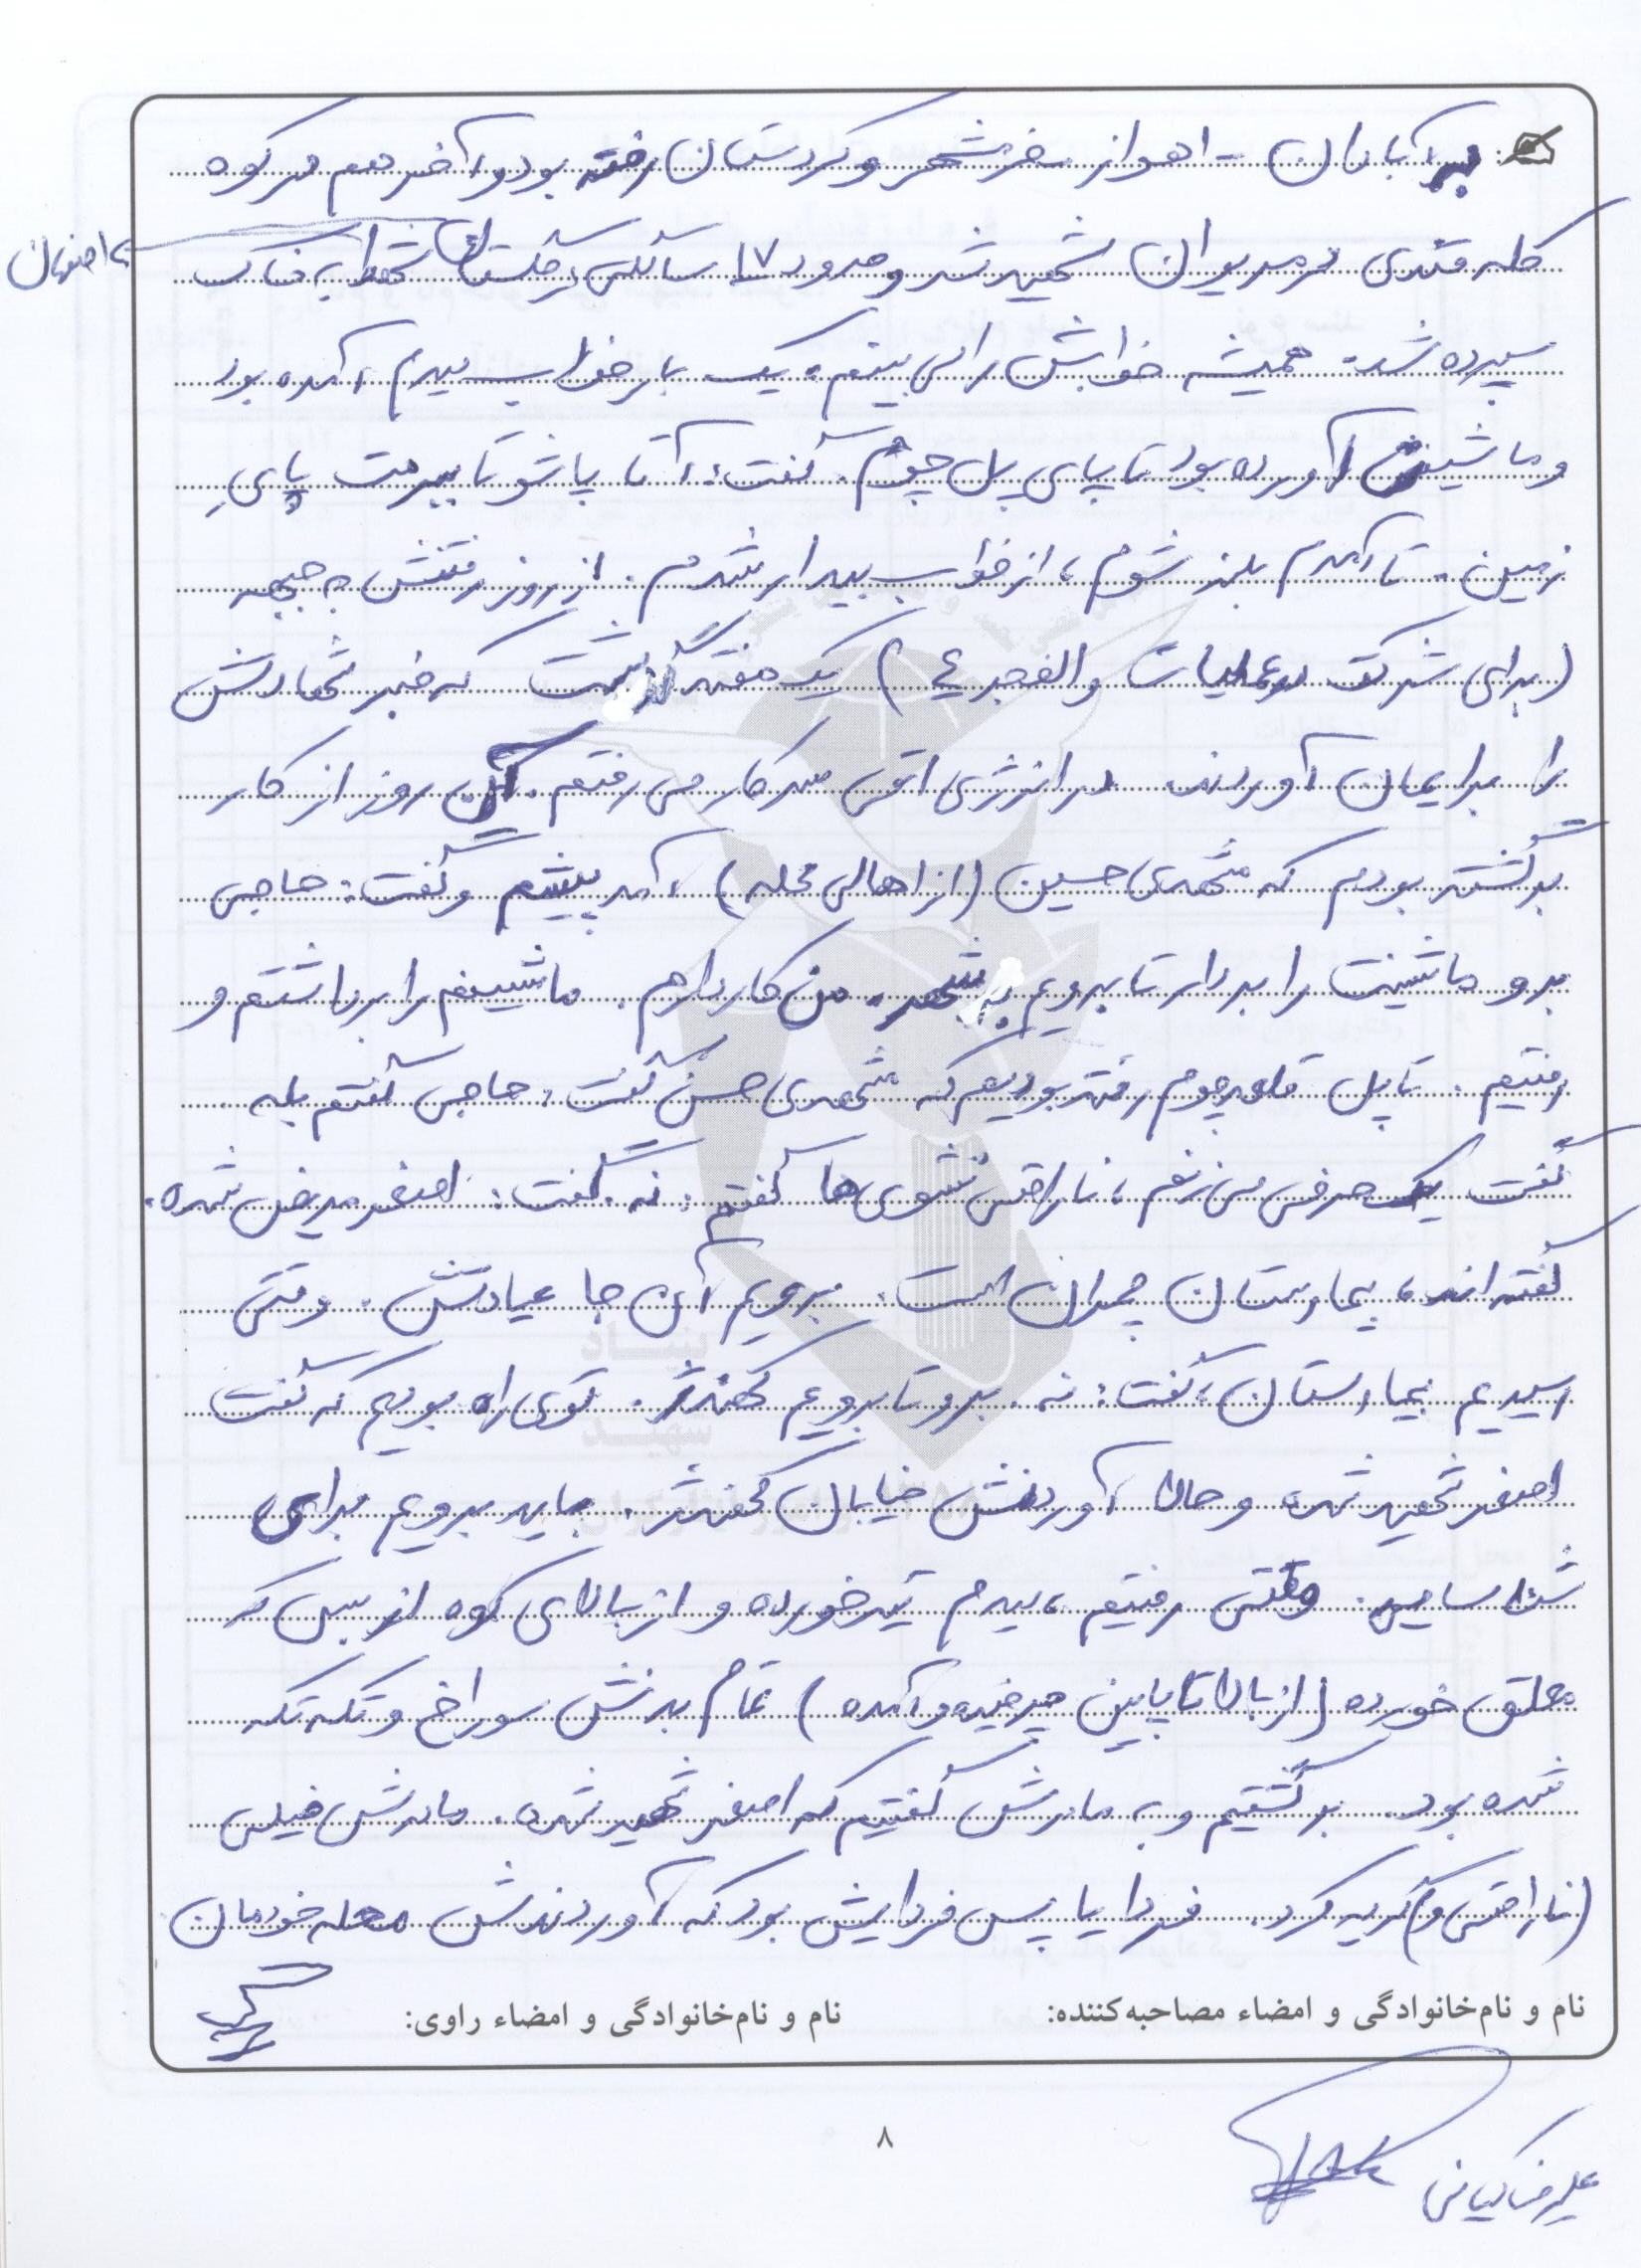 به آبادان - اهواز - خرمشهر و کردستان رفته بود و آخر هم در کوه
کله قندی در مریوان شهید شد و حدود ۱۷ سالگی در گلستان شهدا به خاک
اصفهان
سپرده شد. همیشه خوابش را می بینم، یک بار خواب دیدم، آمده بود
و ماشین آورده بود تا پای پل چوم. گفت: آقا پاشو تا ببرمت پایِ
زمین. تا آمدم بلند شوم، از خواب بیدار شدم. از روز رفتنش به جبهه
(برای شرکت در عملیات والفجر ۴) یک هفته گذشت که خبر شهادتش
را برایمان آوردند. در انرژی اتمی سر کار می رفتم. آن روز از کار
برگشته بودم که مشهدی حسین (از اهالی محله) آمد پیشم و گفت: حاجی
برو ماشینت را بردار تا برویم به شهر. من کار دارم. ماشینم را برداشتم و
رفتیم. تا پل قلعه چوم رفته بودیم که مشهدی حسن گفت: حاجی گفتم بله
گفت یک حرفی می زنم، ناراحتی نشوی ها گفتم: نه. گفت: اصغر مریض شده.
گفته اند، بیمارستان چمران است. برویم آن جا عیادتش. وقتی
رسیدیم بیمارستان، گفت: نه. برو تا برویم کهندژ. توی راه بودیم که گفت
اصغر شهید شده و حالا آوردنش خیابان کهندژ. باید برویم برای
شناسایی. وقتی رفتیم، دیدم تیر خورده و از بالای کوه از بس که
معلق خورده (از بالا تا پایین چرخیده و آمده) تمام بدنش سوراخ و تکه تکه
شده بود. برگشتیم و به مادرش گفتیم که اصغر شهید شده. مادرش خیلی
(ناراحتی و) گریه کرد. فردا یا پس فردایش بود که آوردندش محله خودمان
نام و نام‌خانوادگی و امضاء مصاحبه‌کننده:
نام و نام‌خانوادگی و امضاء راوی:
۸
علیرضا کیانی